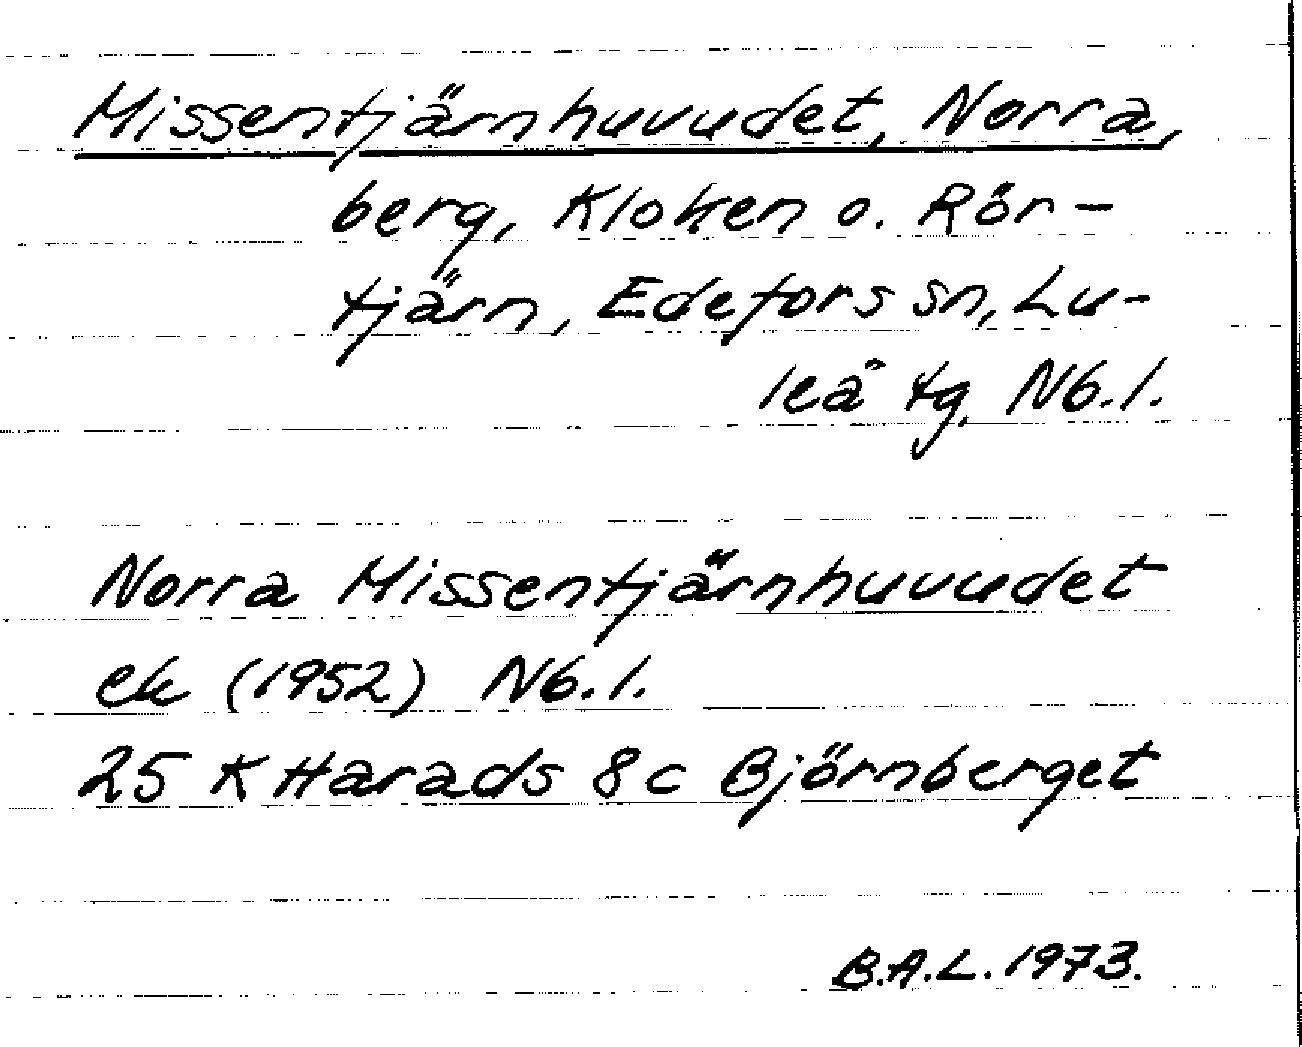 Missentjärnhuvudet, Norra,
berg, Kloken o. Rör-
tjärn, Edefors sn, Lu-
leå tg, Nb.l.
Norra Missentjärnhuvudet
ek (1952) Nb.l.
25 K Harads 8c Björnberget
B.A.L. 1973.